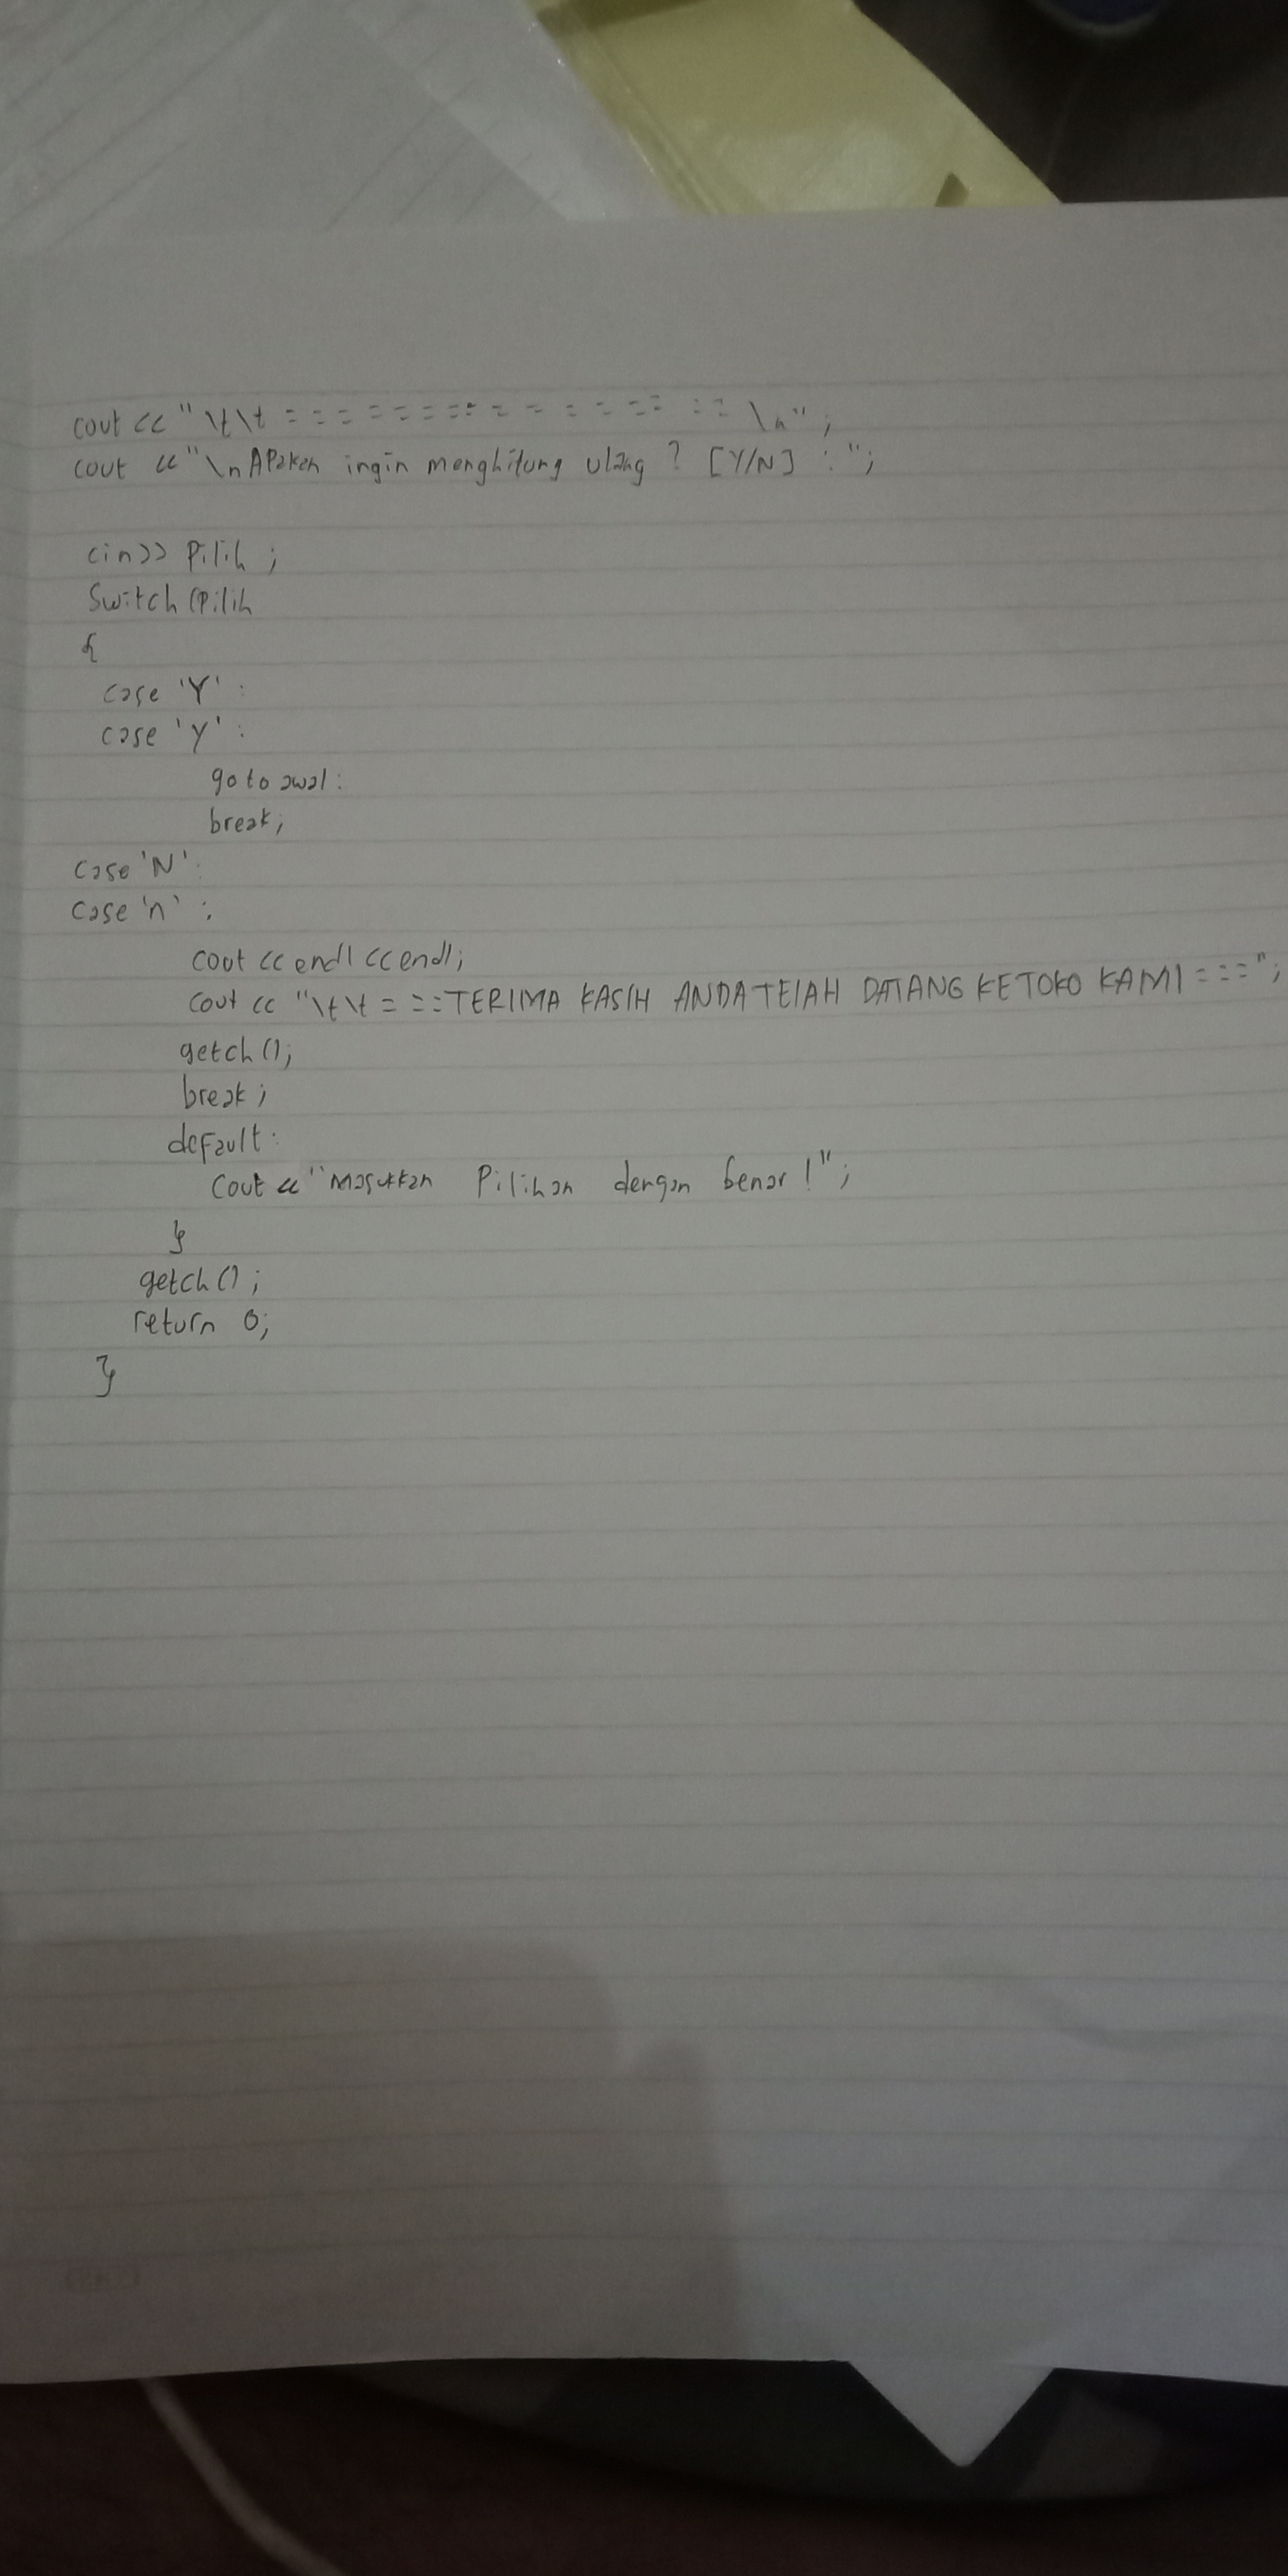 cout << "\t\t = = = = = = = = = = = = = = = = \n";
cout << "\nAPakah ingin menghitung ulang ? [Y/N] : ";
cin>> Pilih ;
Switch (Pilih
{
case 'Y' :
case 'y' :
goto awal :
break;
case 'N' :
case 'n' :
cout << endl << endl;
cout << "\t\t = = = TERIMA KASIH ANDA TElAH DATANG KETOKO KAMI = = =";
getch ();
break ;
default :
Cout << "Masukkan Pilihan dengan benar !";
}
getch () ;
return 0;
}